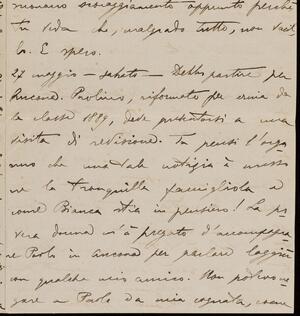 momento scoraggiamento appunto perché
tu veda che, malgrado tutto, non vacil
lo. E spero.
27 maggio - sabato - Debbo partire per
Ancona. Paolino, riformato per ernia da
la classe 1889, deve presentarsi a una
visita di revisione. Tu pensi l'orga
no che una tale notizia à messo
ne la tranquilla famigliola e
come Bianca stia in pensiero! La po
vera donna m'à pregato d'accompagna
re Paolo in Ancona per parlare laggiù
con qualche mio amico. Non potevo ne
gare a Paolo da mia cognata, come